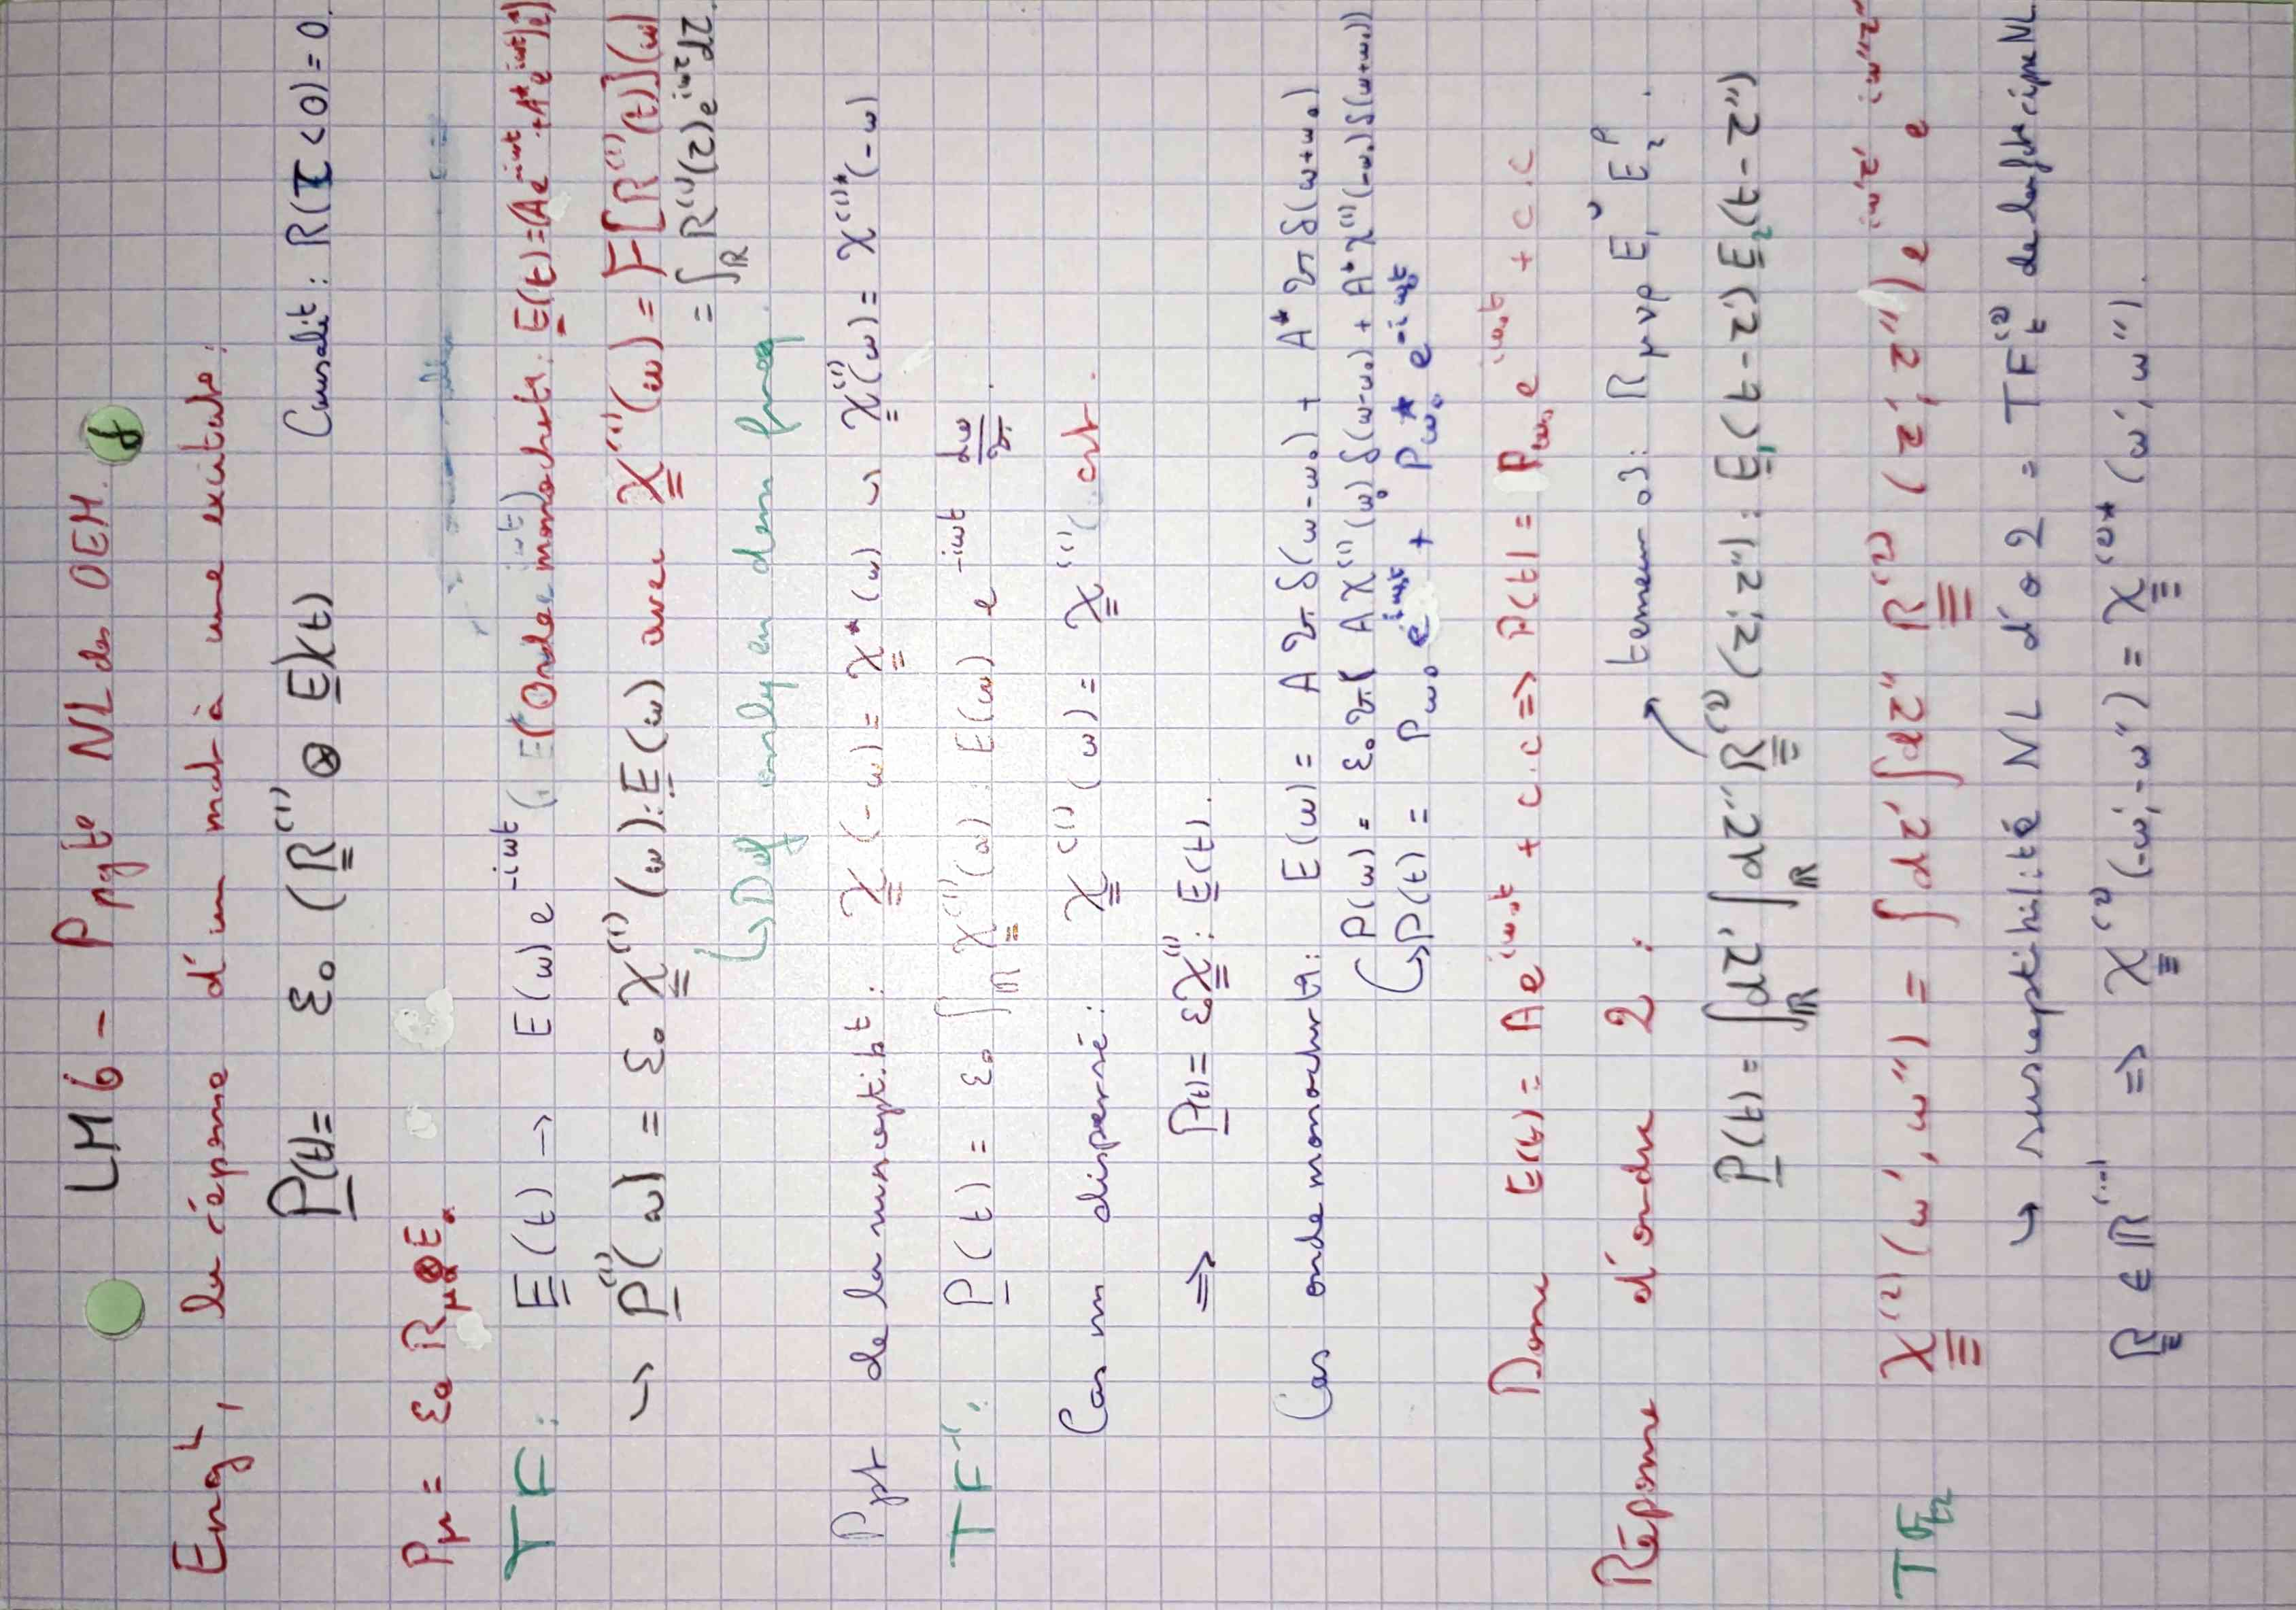 LM 6 - Ppgt° NL des OEM. 8
En gal, la réponse d'un mat à une excitat°:
P(t) = ε₀ (R⁽¹⁾ ⊗ E)(t) Causalit: R(τ<0) = 0.
Pμ = ε₀ Rμα⊗Eα
TF: E(t) → E(ω) e^{-iωt} (Onde monochrta: E(t) = (A e^{-iωt} + A* e^{iωt}) ê)
↳ P⁽¹⁾(ω) = ε₀ χ⁽¹⁾(ω) : E(ω) avec χ⁽¹⁾(ω) = F[R⁽¹⁾(t)](ω)
= ∫_ℝ R⁽¹⁾(τ) e^{iωτ} dτ.
↳ Def only en dom freq.
Ppt de la susceptibt: χ(-ω) = χ*(ω) ↳ χ⁽¹⁾(ω) = χ⁽¹⁾*(-ω)
TF⁻¹: P(t) = ε₀ ∫_ℝ χ⁽¹⁾(ω) : E(ω) e^{-iωt} dω/2π.
Cas nn dispersé: χ⁽¹⁾(ω) = χ⁽¹⁾ cst.
⇒ P(t) = ε₀ χ⁽¹⁾ : E(t).
Cas onde monochrta: E(ω) = A 2π δ(ω-ω₀) + A* 2π δ(ω+ω₀)
P(ω) = ε₀ 2π( A χ⁽¹⁾(ω₀) δ(ω-ω₀) + A* χ⁽¹⁾(-ω₀) δ(ω+ω₀))
↳ P(t) = Pω₀ e^{iω₀t} + Pω₀* e^{-iω₀t}
Donc E(t) = A e^{iω₀t} + c.c ⇒ P(t) = Pω₀ e^{iω₀t} + c.c
Réponse d'ordre 2 : tenseur o3: Rμνρ E₁^ν E₂^ρ.
P(t) = ∫_ℝ dτ' ∫_ℝ dτ'' R⁽²⁾(τ', τ'') : E₁(t-τ') E₂(t-τ'')
TF χ⁽²⁾(ω', ω'') = ∫dτ' ∫dτ'' R⁽²⁾ (τ', τ'') e^{iω'τ'} e^{iω''τ''}
↳ susceptibilité NL d'o 2 = TF_t⁽²⁾ de la fct° réponse NL.
R ∈ ℝ ⇒ χ⁽²⁾(-ω', -ω'') = χ⁽²⁾*(ω', ω'').